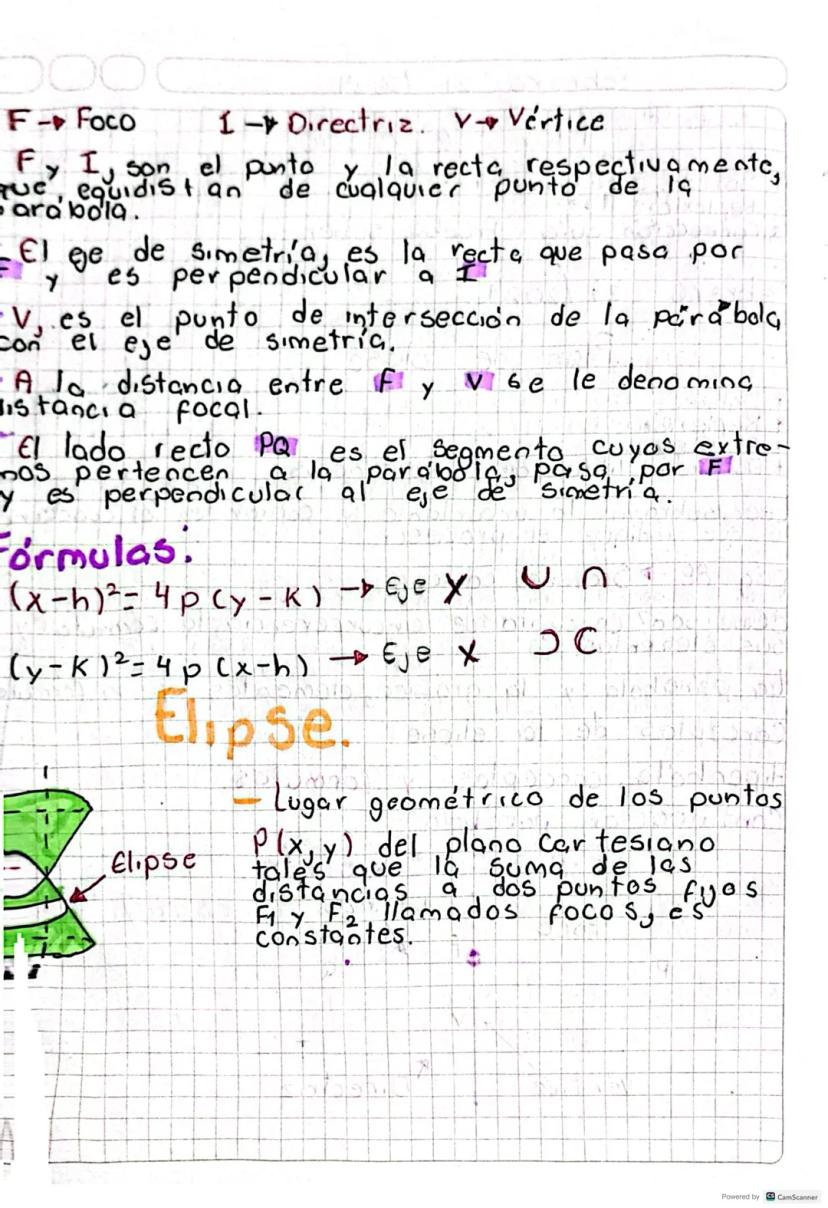 F → Foco I → Directriz. V → Vértice
F y I, son el punto y la recta respectivamente,
que, equidistan de cualquier punto de la
arábola.
- El eje de simetría, es la recta que pasa por
F y es perpendicular a I
- V, es el punto de intersección de la párábola
con el eje de simetría.
- A la distancia entre F y V se le denomina
distancia focal.
- El lado recto PQ es el segmento cuyos extre-
mos pertencen a la parábola, pasa por F
y es perpendicular al eje de simetría.
Fórmulas:
(x-h)²= 4p(y-k) → Eje y ∪ ∩
(y-k)²= 4p(x-h) → Eje x ⊃ ⊂
Elipse.
- Lugar geométrico de los puntos
P(x,y) del plano cartesiano
tales que la suma de las
distáncias a dos puntos fijos
F1 y F2 llamados focos, es
constantes.
Elipse
Powered by CS CamScanner